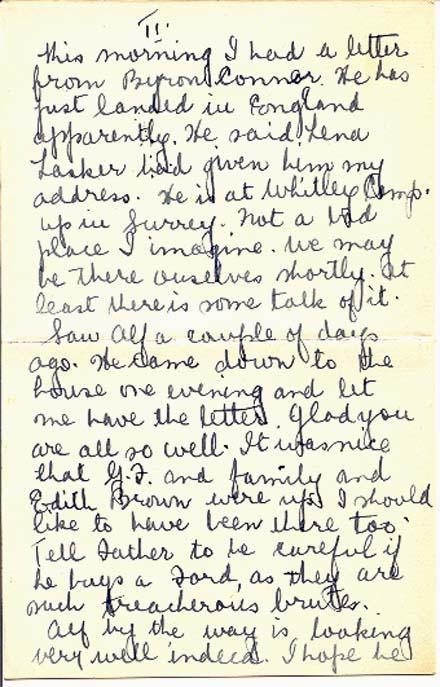 II.
This morning I had a letter
from Byron Connor. He has
just landed in England
apparently. He said Lena
Lasker had given him my
address. He is at Whitley Camp.
up in Surrey. Not a bad
place I imagine. We may
be there ourselves shortly. At
least there is some talk of it.
Saw Alf a couple of days
ago. He came down to the
house one evening and let
me have the letter. Glad you
are all so well. It was nice
that G.F. and family and
Edith Brown were up. I should
like to have been there too.
Tell Father to be careful if
he buys a Ford, as they are
such treacherous brutes.
Alf by the way is looking
very well indeed. I hope he